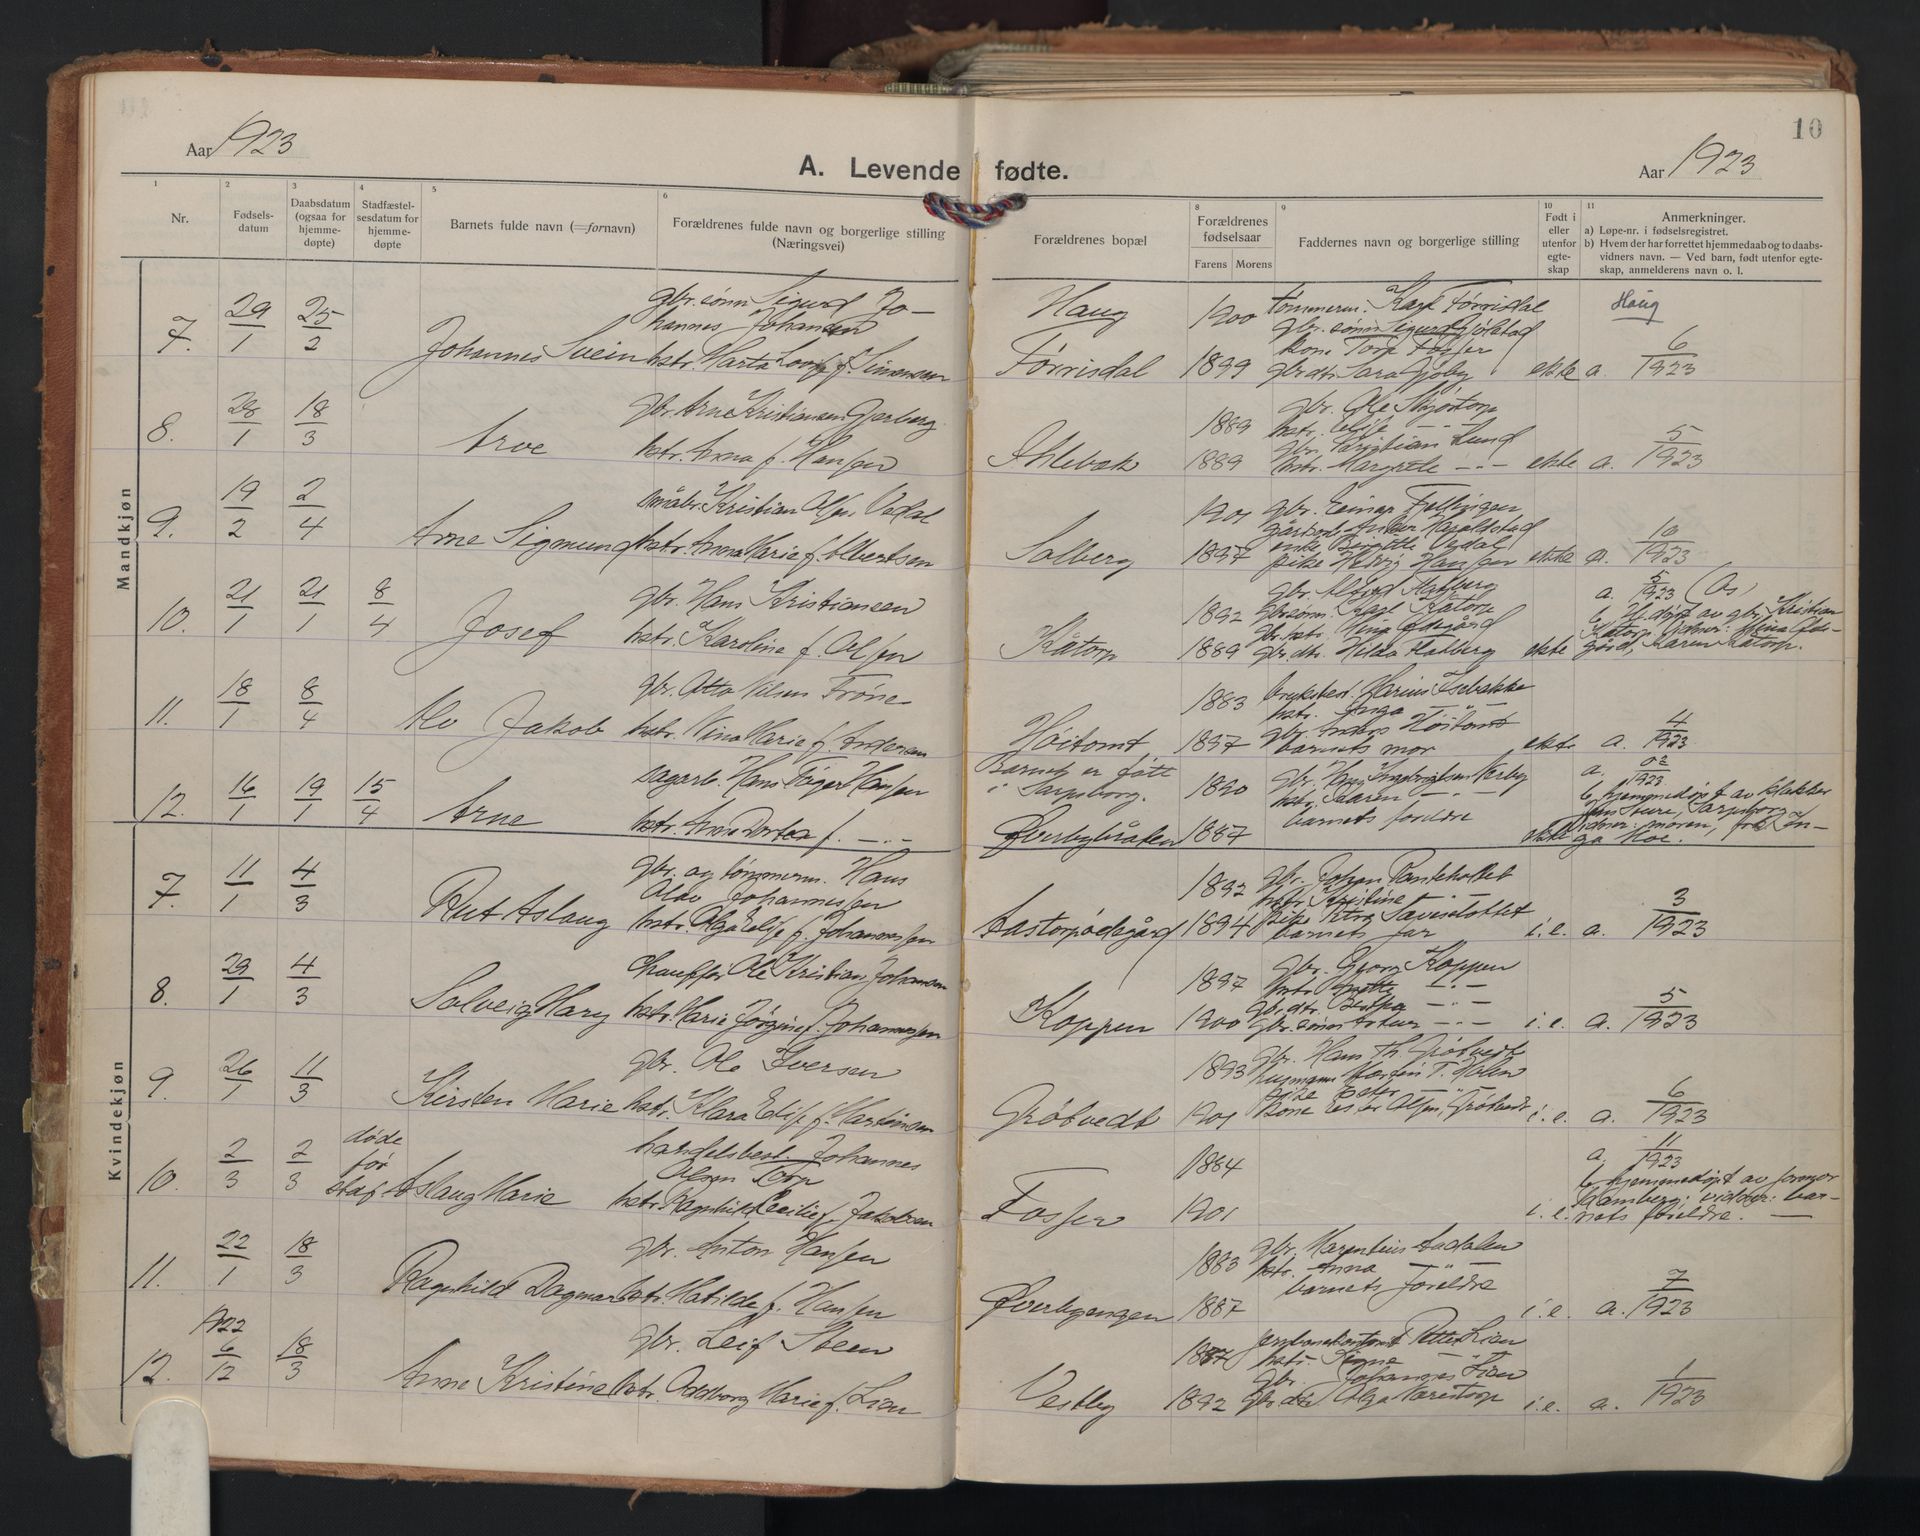 10
Aar 1923
A. Levende fødte.
Aar 1923
1 2 3 4 5 6 8 9 10 11
Nr.
Fødsels-
datum
Daabsdatum
(ogsaa for
hjemme-
døpte)
Stadfæstel-
sesdatum for
hjemme-
døpte
Barnets fulde navn (=fornavn)
Forældrenes fulde navn og borgerlige stilling
(Næringsvei)
Forældrenes bopæl
Forældrenes
fødselsaar
Farens Morens
Faddernes navn og borgerlige stilling
Født i
eller
utenfor
egte-
skap
Anmerkninger.
a) Løpe-nr. i fødselsregistret.
b) Hvem der har forrettet hjemmedaab og to daabs-
vidners navn. — Ved barn, født utenfor egte-
skap, anmelderens navn o. l.
Mandkjøn
7. 29/1 25/2 Johannes Svein
gbr.sønn Sigurd Jo-
hannes Johansen
hstr. Marta f. Simensen
Haug
Førrisdal
1900
1899
tømmerm. Karl Førrisdal
gbr.sønn Sigurd
kone
gbrdtr. Sara
ekte a. 6/1923
Haug
8. 28/1 18/3 Arve
gbr. Arne Kristiansen Gjerberg
hstr. Anna f. Hansen
Ihlebæk
1889
1889
gbr. Ole
hstr. Elise — " —
gbr. Kristian Lund
hstr. Margrete — " —
ekte a. 5/1923
9. 19/2 2/4 Arne Sigmund
småbr. Kristian Olsen Vedal
hstr. Anna Marie f. Albertsen
Solberg
1901
1897
gbr. Einar
enke Birgitte Vedal
pike Hedvig Hansen
ekte a. 10/1923
10. 21/1 21/1 8/4 Josef
gbr. Hans Kristiansen
hstr. Karoline f. Olsen
Kåtorp
1892
1889
gbr. Alfred
gbrsønn Karl Kåtorp
gbr.hstr. Mina
gbrdtr. Hilda
ekte a. 5/1923 (Os)
b. Hj.døpt av gbr. Kristian
Kåtorp. Vidner: Mina
gård, Karen Kåtorp.
11. 18/1 8/4 Alv Jakob
gbr. Otto Nilsen Trøne
hstr. Nina Marie f. Andersen
Høitomt
1883
1897
Marius Isebakke
hstr. Inga — " —
gbr. Anders Høitomt
barnets mor
ekte a. 4/1923
12. 16/1 19/1 15/4 Arne
sagarb. Hans Hansen
hstr. Anne Dortea f. — " —
Barnet er født
i Sarpsborg.
Øverbybråten
1890
1887
gbr. Hans Ingebrigtsen Verby
hstr. Maren — " —
barnets foreldre
ekte
a. 02/1923
b. hjemmedøpt av klokker
Sture, Sarpsborg
Vidner: moren, frk. In-
ga Moe.
Kvindekjøn
7. 11/1 4/3 Rut Aslaug
gbr. og tømmerm. Hans
Olav Johannessen
hstr. Olga Elise f. Johannessen
Aastorpødegård
1892
1894
gbr. Johan
hstr. Kristine
pike Petra
barnets far
i.e. a. 3/1923
8. 29/1 4/3 Solveig Mary
chauffør Ole Kristian Johansen
hstr. Marie Jørgine f. Johannessen
Koppen
1897
1900
gbr. Georg Koppen
hstr. — " —
gbr.dtr. Bertha — " —
gbr.sønn Artur — " —
i.e. a. 5/1923
9. 26/1 11/3 Kirsten Marie
gbr. Ole Iversen
hstr. Klara Edis f. Martinsen
Grøtvedt
1893
1901
gbr. Hans Th. Grøtvedt
husmann Martin T. Holm
kone Ester Olsen, Grøtvedt
i.e. a. 6/1923
10. 2/3 2/3 døde
før
staf
Aslaug Marie
handelsbest. Johannes
Olsen Torp
hstr. Ragnhild Cecilie f. Jakobsen
Fosser
1884
1901
i.e.
a. 11/1923
b. hjemmedøpt av jormor
Hamberg: vidner: bar-
nets foreldre. —
11. 22/1 18/3 Ragnhild Dagmar
gbr. Anton Hansen
hstr. Matilde f. Hansen
Øverbyengen
1883
1887
gbr. Marentius Aadalen
hstr. Anna — " —
barnets foreldre
i.e. a. 7/1923
12. 1922 6/12 18/3 Anne Kristine
gbr. Leif Steen
hstr. Oddborg Marie f. Lien
Vestby
1887
1892
Petter Lien
hstr.
gbr. Johannes Lien
gbrdtr. Olga
i.e. a. 1/1923